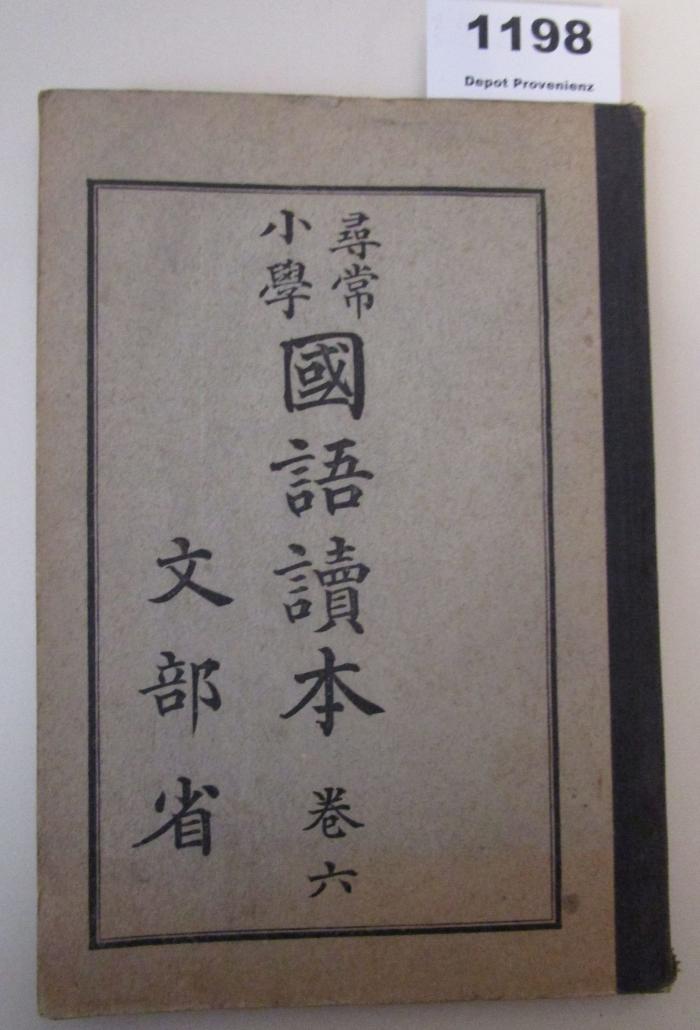 1198
Depot Provenienz
尋常
小學
國語讀本 卷六
文部省